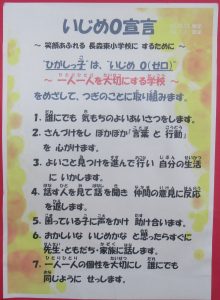 いじめ０宣言
～ 笑顔あふれる 長森東小学校に するために ～
"ひがしっ子"は、"いじめ ０(ゼロ)"
～ 一人一人を大切にする学校 ～
をめざして、つぎのことに取り組みます。
1. 誰にでも 気もちのよいあいさつをします。
2. さんづけをし ほかほか「言葉 と 行動」
を 心がけます。
3. よいこと見つけを進んで行い 自分の生活
に いかします。
4. 話す人を見て話を聞き 仲間の意見に反応
を返します。
5. 困っている子に声をかけ 助け合います。
6. おかしいな いじめかな と思ったらすぐに
先生・ともだち・家族に話します。
7. 一人一人の個性を大切にし 誰にでも
同じように せっします。